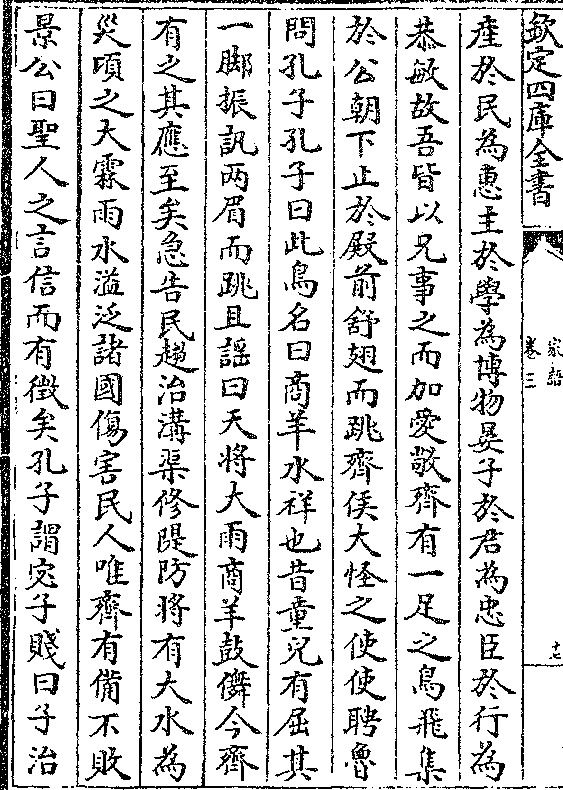 欽定四庫全書
家語
卷三
十七
産於民為惠主於學為博物晏子於君為忠臣於行為
恭敏故吾皆以兄事之而加愛敬齊有一足之鳥飛集
於公朝下止於殿前舒翅而跳齊侯大怪之使使聘魯
問孔子孔子曰此鳥名曰商羊水祥也昔童兒有屈其
一脚振訊兩眉而跳且謡曰天將大雨商羊鼓儛今齊
有之其應至矣急告民趨治溝渠修隄防將有大水為
災頃之大霖雨水溢泛諸國傷害民人唯齊有備不敗
景公曰聖人之言信而有徵矣孔子謂宓子賤曰子治